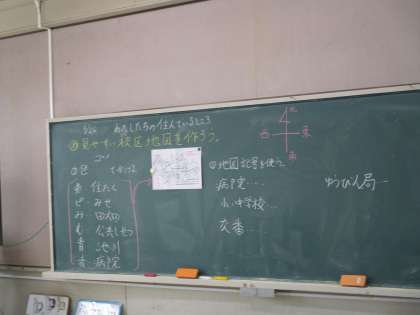 わたしたちの住んでいるところ
見やすい校区地図を作ろう。
①色
住たく
みせ
田畑
公共しせつ
青 池川
病院
②地図記号を使う
病院…
小・中学校…
交番…
ゆうびん局…
北
西 東
南